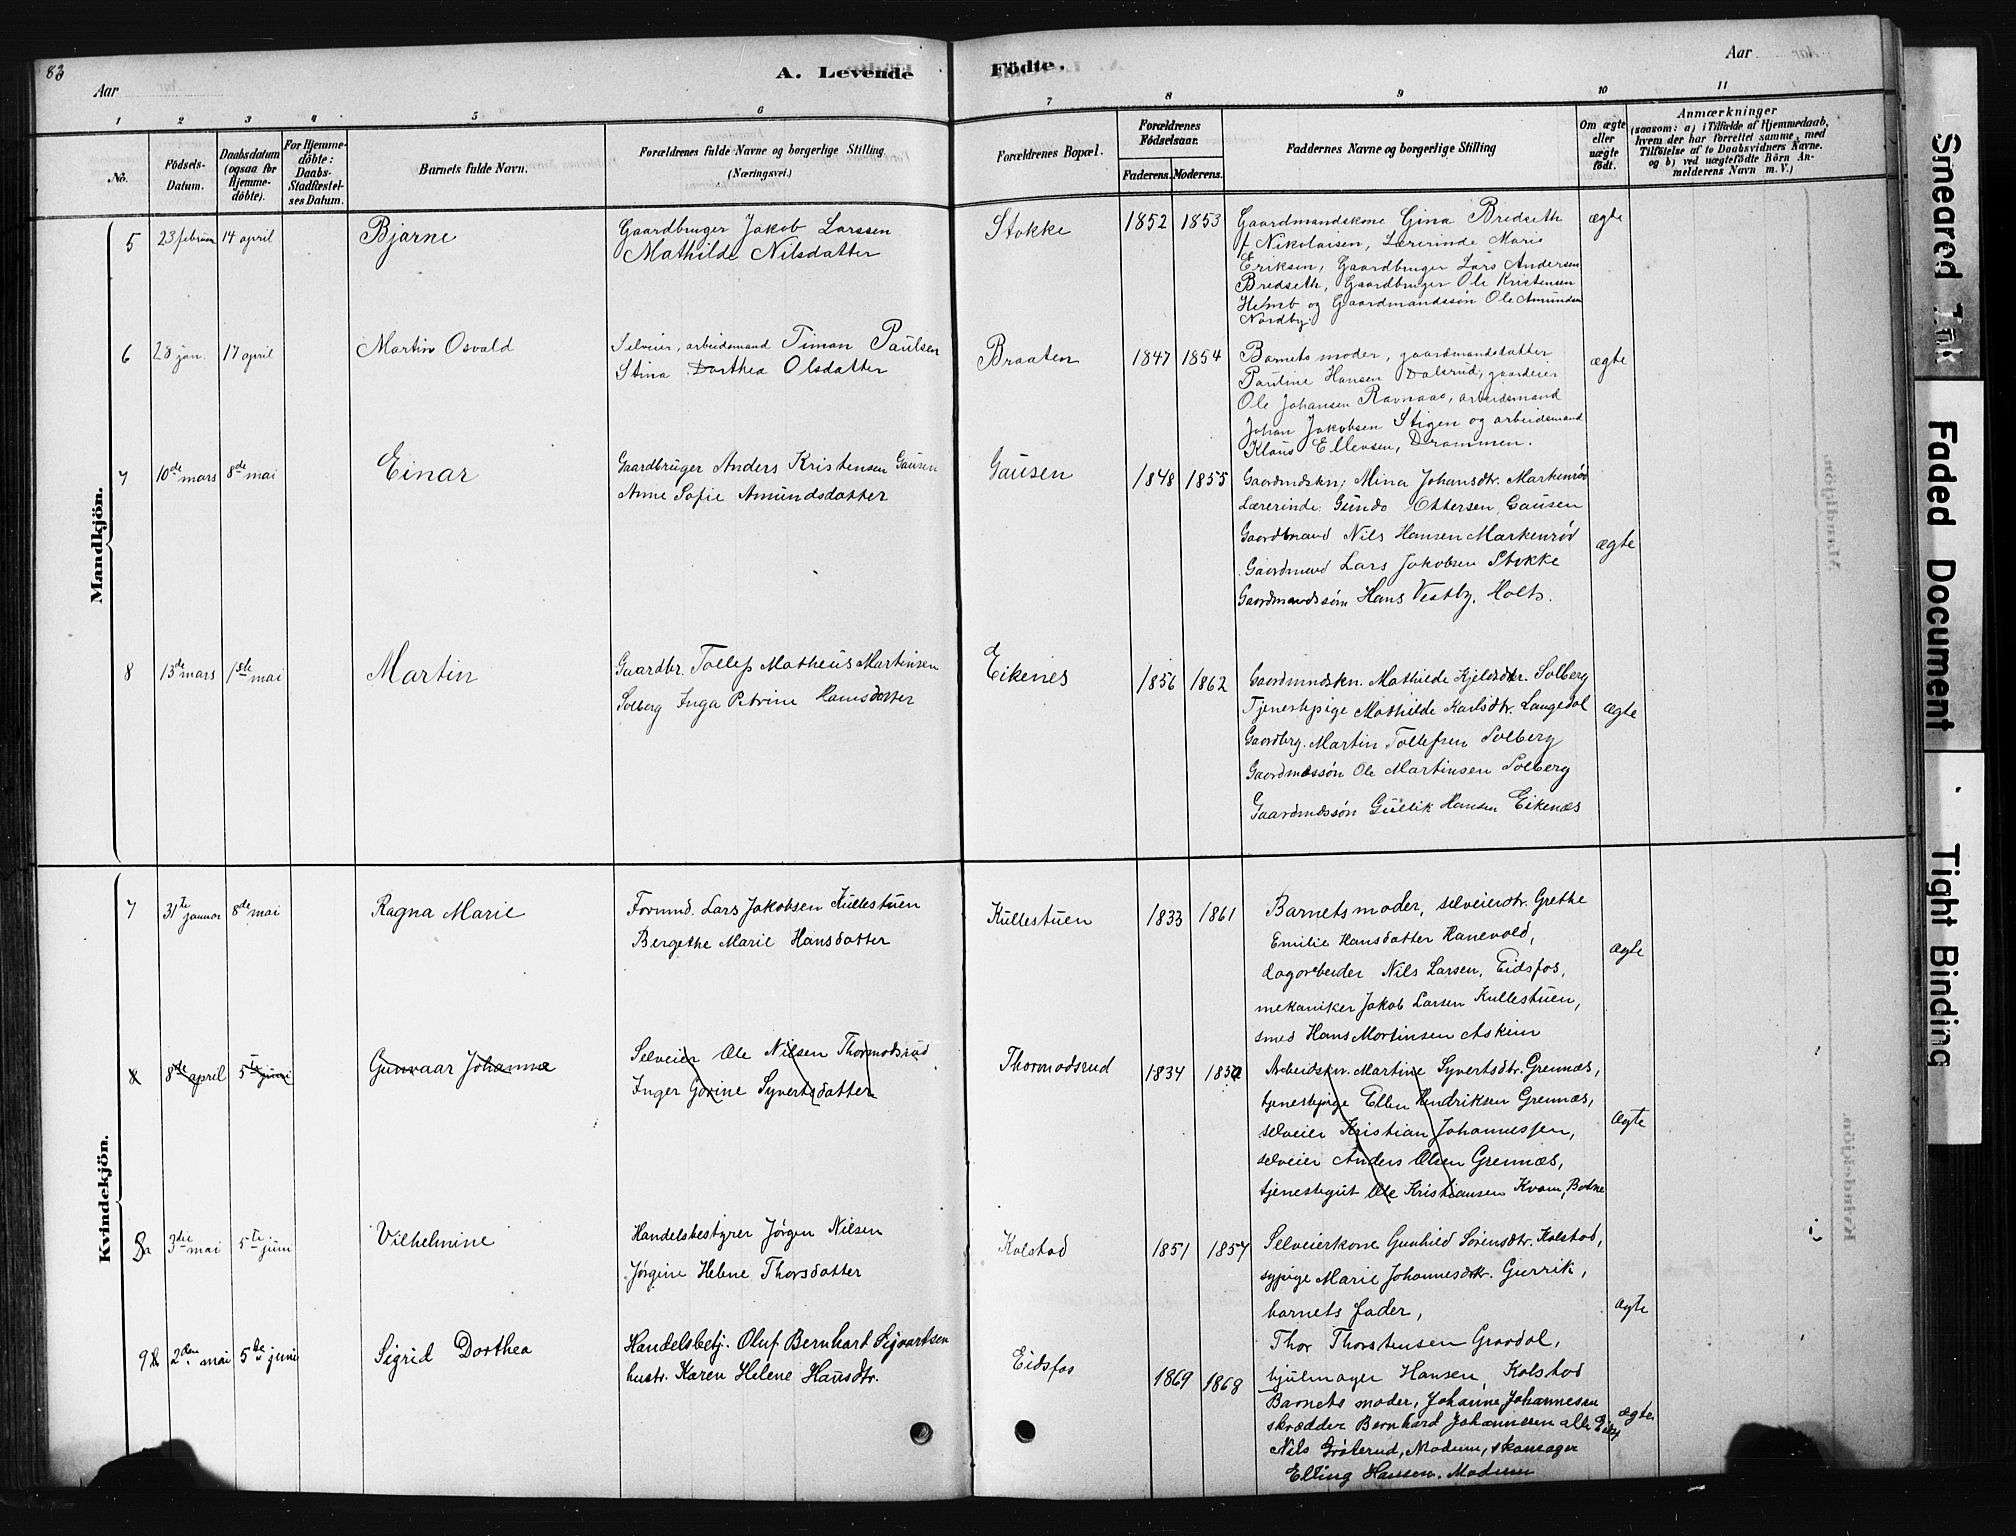 83
A. Levende
Födte.
Aar
Aar
1 2 3 4 5 6 7 8 9 10 11
No.
Födsels-Datum.
Daabsdatum (ogsaa for Hjemmedöbte).
For Hjemmedöbte: Daabs-Stadfæstelses Datum.
Barnets fulde Navn.
Forældrenes fulde Navne og borgerlige Stilling (Næringsvei.)
Forældrenes Bopæl.
Forældrenes Födselsaar.
Faderens. Moderens.
Faddernes Navne og borgerlige Stilling
Om ægte eller uægte födt.
Anmærkninger
(saasom: a) i Tilfælde af Hjemmedaab, hvem der har forrettet samme, med Tilföielse af to Daabsvidners Navne. og b) ved uægtefödte Börn Anmelderens Navn m. V.)
Mandkjön.
5 23 februar 14 april Bjarne
Gaardbruger Jakob Larssen
Mathilde Nilsdatter
Stokke 1852 1853
Gaardmandskone Gina Bredseth
f Nikolaisen, Lærerinde Marie
Eriksen, Gaardbruger Lars Andersen
Bredseth, Gaardbruger Ole Kristensen
og Gaardmandssön Ole Amundsen
Nordby.
ægte
6 28 jan. 17 april Martin Osvald
Selveier, arbeidsmand Timan Paulsen
Stina Dorthea Olsdatter
Braaten 1847 1854
Barnets moder, gaardmandsdatter
Pauline Hansen Dalsrud, gaardeier
Ole Johansen Ravnaas, arbeidsmand
Johan Jakobsen Stigen og arbeidsmand
Klaus Ellevsen, Drammen.
ægte
7 10de mars 8de mai Einar
Gaardbruger Anders Kristensen Gausen
Anne Sofie Amundsdatter
Gausen 1848 1855
Gaardmdskn, Mina Johansdtr. Markenrød
Lærerinde Gunda Ottersen, Gausen
Gaardmand Nils Hansen Markenrød
Gaardmand Lars Jakobsen Stokke
Gaardmandssøn Hans Vestby, Holts.
ægte
8 13de mars 1ste mai Martin
Gaardbr. Tollef Matheus Martinsen
Solberg Inga Petrine Hansdatter
Eikenes 1856 1862
Gaardmandskn. Mathilde Kjeldsdtr. Solberg
Tjenestepige Mathilde Karlsdtr. Langedal
Gaardbrg. Martin Tollefsen Solberg
Gaardmdssøn Ole Martinsen Solberg
Gaardmdssøn Gullik Hansen Eikenæs
ægte
Kvindekjön.
7 31te januar 8de mai Ragna Marie
Formnd. Lars Jakobsen Kullestuen
Bergethe Marie Hansdatter
Kullestuen 1833 1861
Barnets moder, selveierdtr. Grethe
Emilie Hansdatter Hanevold,
dagarbeider Nils Larsen, Eidsfos,
mekaniker Jakob Larsen Kullestuen,
smed Hans Martinsen Askim
ægte
8 8de april 5te juni Gunvaar Johanne
Selveier Ole Nilsen Thormodsrud
Inger Gorine Syvertsdatter
Thormodsrud 1834
Arbeidskn. Martine Syvertsdtr. Grennæs,
tjenestepige Ellen Hendriksen Grennæs,
selveier Kristian Johannessen,
selveier Anders Olsen Grennæs,
tjenestegut Ole Kristiansen Kvam, Botne
ægte
8a 3die mai 5te juni Vilhelmine
Handelsbestyrer Jørgen Nilsen
Jørgine Helene Thorsdatter
Kolstad 1851 1857
Selveierkone Gunhild Sörensdtr. Kolstad,
sypige Marie Johannesdtr. Gurrik,
barnets fader,
Thor Thorstensen Graadal,
hjulmager Hansen, Kolstad
ægte
9 2den mai 5te juni Sigrid Dorthea
Handelsbetj. Oluf Bernhard Sigvartsen
hustr. Karen Helene Hansdtr.
Eidsfos 1869 1868
Barnets moder, Johanne Johannessen
skrædder Bernhard Johannesen alle
Nils Grölerud, Modum, skomager
Elling Hansen, Modum
ægte
Smeared Ink
Faded Document
Tight Binding